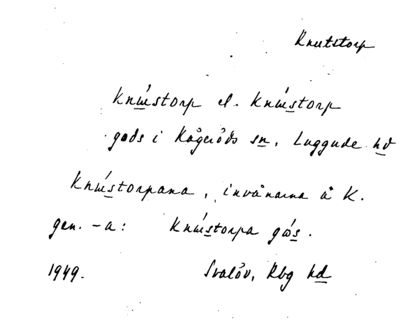 Knutstorp
knʉ́storp el. knʉ́storp
gods i Kågeröds sn, Luggude hd
knʉ́storpana, invånarna å K.
gen. -a: knʉ́storpa gó̤s.
1949. Svalöv, Rbg hd